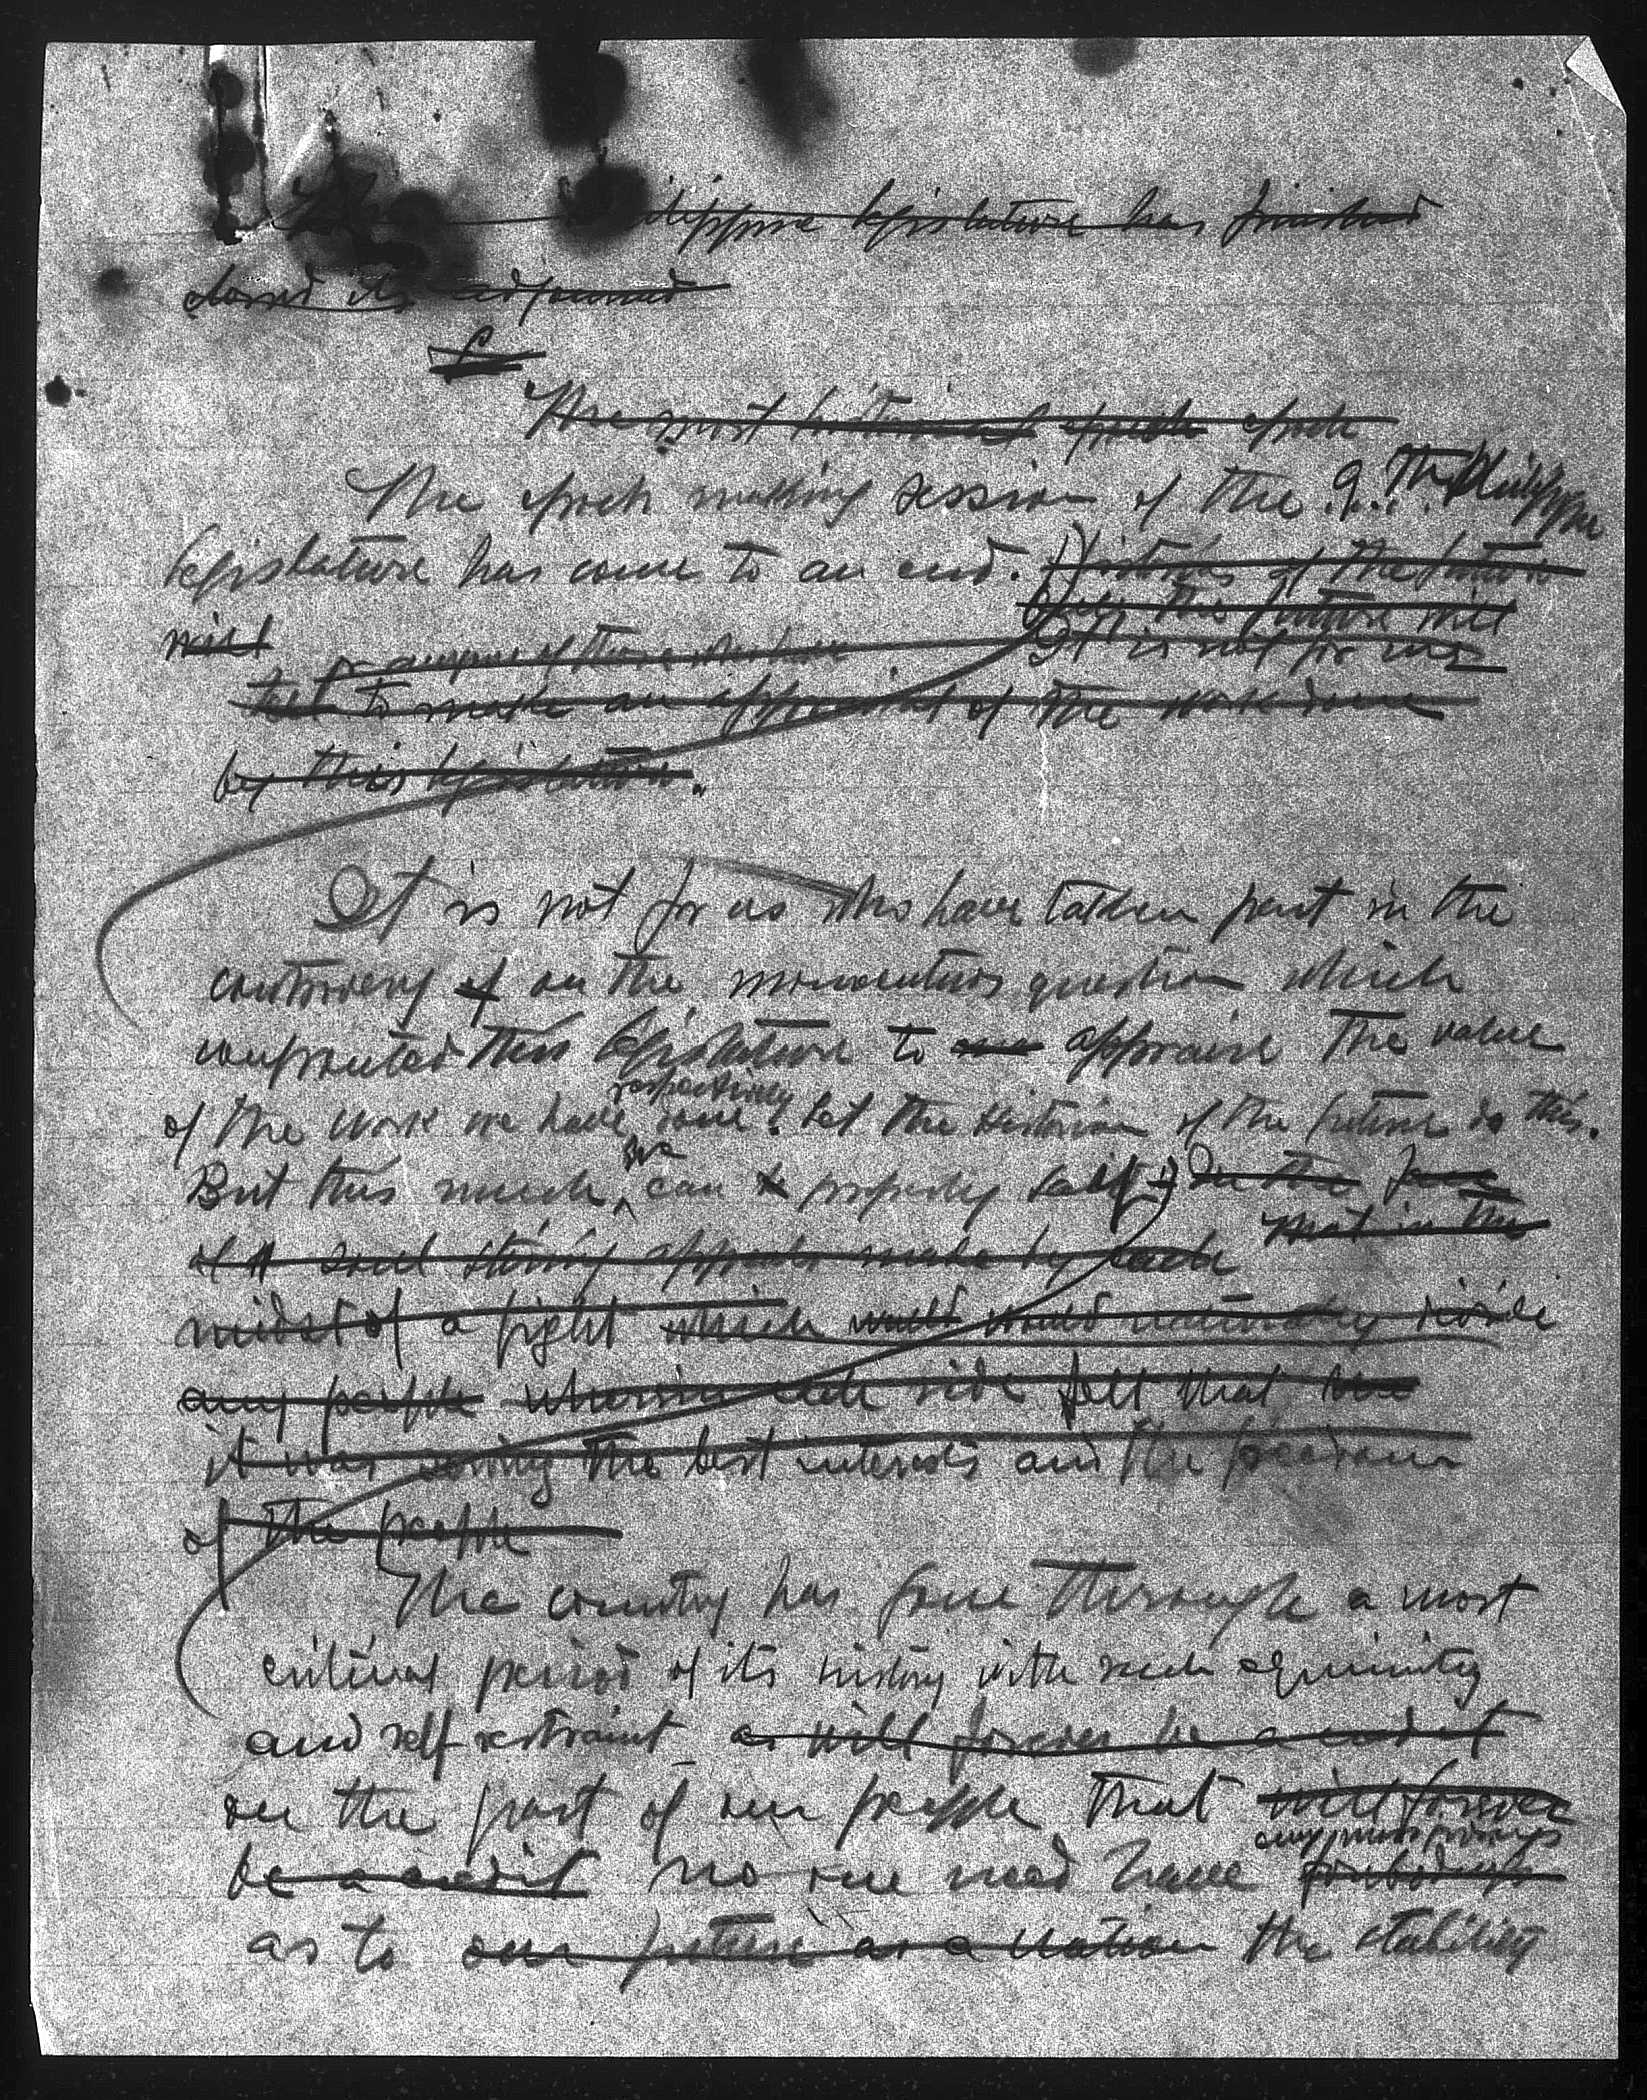 The Philippine legislature has finished
closed its adjourned
The most historical epoch epoch
The epoch making session of the 9th Philippine
legislature has come to an end. Histories of the future
Only the future will
will It is not for me
or anyone of those who have
to make an appraisal of the work done
by this legislature.
It is not for us who have taken part in the
controversy of on the momentous question which
confronted this legislature to appraise the value
respectively
of the work we have done. Let the historian of the future do this.
we
But this much can properly say: In the face
that in the
of soul stirring appeals made by each
midst of a fight which would would naturally divide
any people wherein each side felt that
it was serving the best interests and the freedom
of the people
The country has gone through a most
critical period of its history with such equinimity
and self-restraint as will forever be a credit
on the part of our people that will forever
any misgivings
be a credit no one need have forebodings
as to our future as a nation the stability